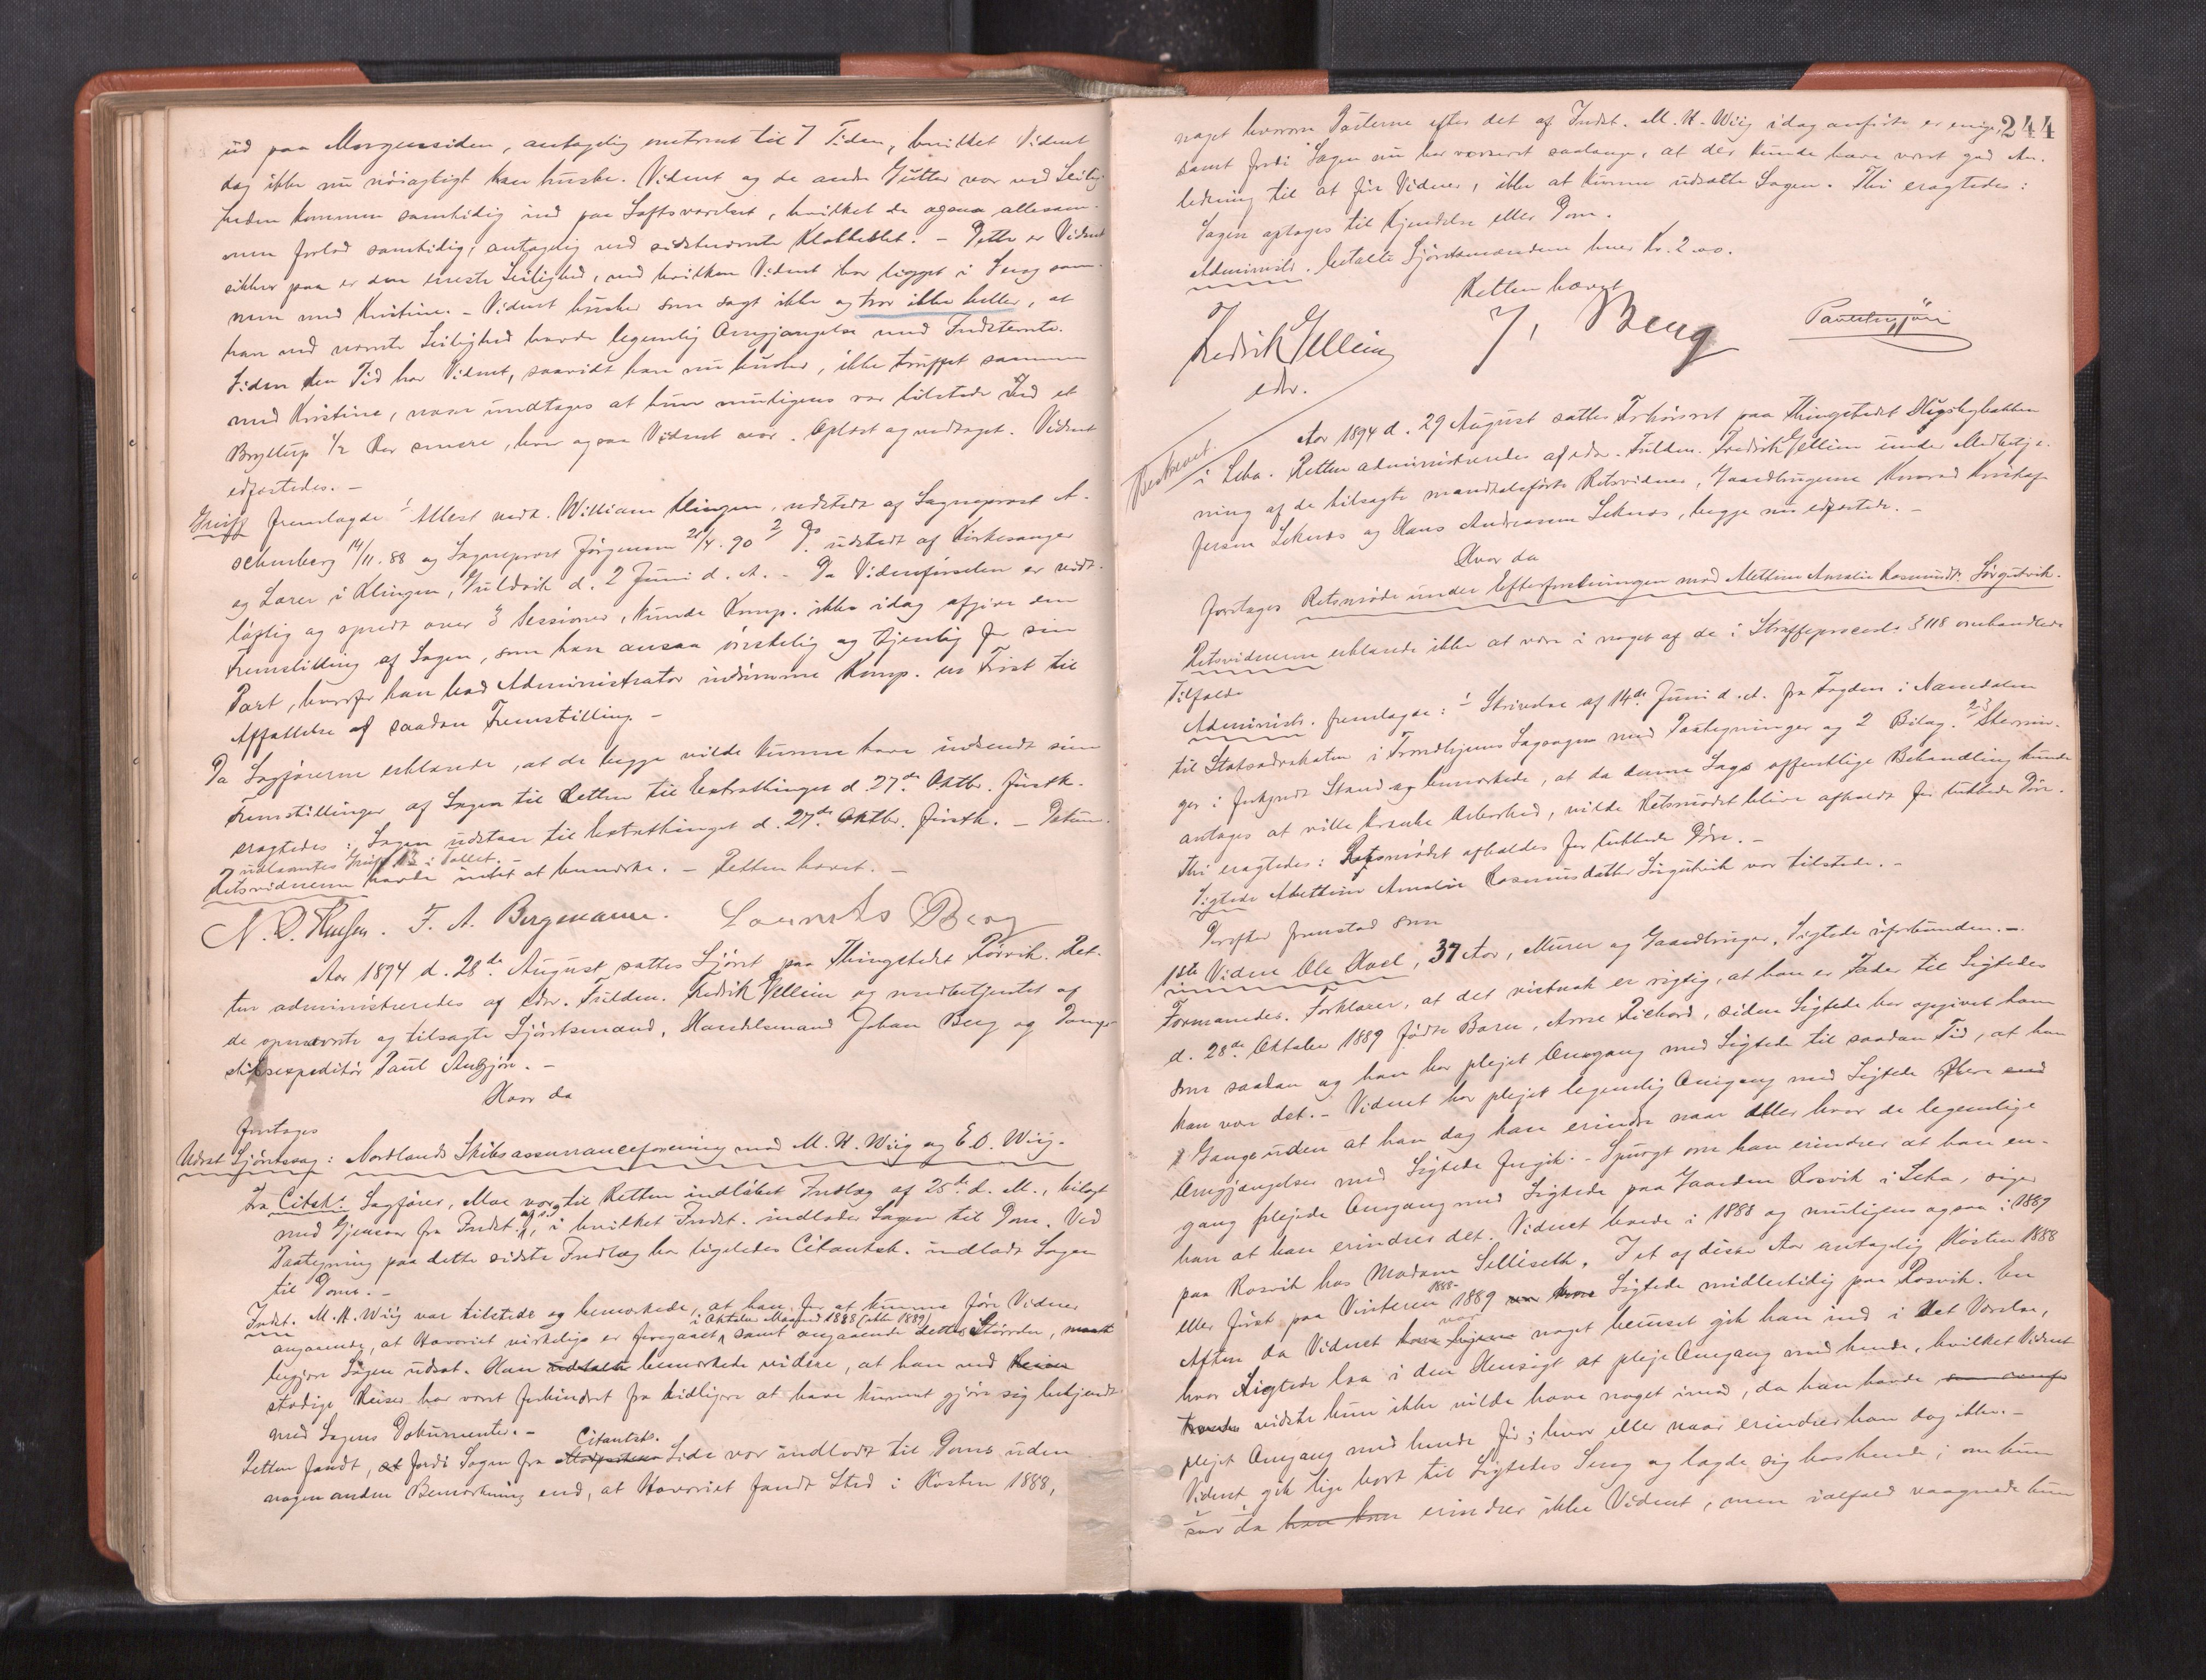 ud paa Morgensiden, antagelig omtrent til 7 Tiden, hvilket Vidnet
dog ikke nu nöiagtigt kan huske. Vidnet og de andre Gutter var ved Leilig-
heden kommen samtidig ind paa Loftsværelset, hvilket de ogsaa allesam-
men forlod samtidig, antagelig ved sidstnævnte Klokkeslet. – Dette er Vidnet
sikker paa er den eneste Leilighed, ved hvilken Vidnet har ligget i Seng sam-
men med Kristine. – Vidnet husker som sagt ikke og tror ikke heller, at
han ved nævnte Leilighed havde legemlig Omgjængelse med Indstevnte.
Siden den Tid har Vidnet, saavidt han nu husker, ikke truffet sammen
med Kristine, naar undtages at hun muligens var tilstede ved et
Bryllup ½ Aar senere, hvor ogsaa Vidnet var. Oplæst og vedtaget. Vidnet
edfæstedes. –
Greiff fremlagde 1 Attest vedk. William Klingen, udstedt af Sogneprest A.
Schnberg 14/11.88 og Sogneprest Jörgensen 21/4.90 2 Do. udstedt af Kirkesanger
og Lærer i Klingen, Guldvik d. 2 Juni d. A. – Da Vidneförselen er vidt-
löftig og spredt over 3 Sessioner, kunde Komp. ikke idag afgive den
Fremstilling af Sagen, som han ansaa önskelig og tjenlig for sin
Part, hvorfor han bad Administrator indrömme Komp. en Frist til
Affattelse af saadan Fremstilling. –
Da Sagförerne erklærede, at de begge vilde kunne have indsendt sine
Fremstillinger af Sagen til Retten til Extrathinget d. 27de Oktbr. förstk.
eragtedes: Sagen udstaar til Extrathinget d. 27de Oktbr. förstk. –
udlaantes Greiff i Tallet.
Retsvidnerne havde intet at bemærke. – Retten hævet. –
N. O. Hansen. F. A. Bergmann. Laurents Berg
Aar 1894 d. 28de August sattes Sjöret paa Thingstedet Rörvik. Ret-
ten administreredes af edsv. Fuldm. Fredrik Gellein og medbetjentes af
de opnævnte og tilsagte Sjöretsmænd, Handelsmand Johan Berg og Damp-
skibsexpeditör Paul Angjön. –
Hvor da
foretoges
Udsat Sjöretssag: Nordlands Skibsassuranceforening mod M. H. Wiig og E. O. Wiig.
Fra Citsk. Sagförer, Moe var til Retten indlöbet Indlæg af 25de d. M., bilagt
med Gjensvar fra Indst., i hvilket Indst. indlader Sagen til Dom. Ved
Paategning paa dette sidste Indlæg har ligeledes Citantsk. indladt Sagen
til Doms. –
Indst. M. H. Wiig var tilstede og bemærkede, at han, for at kunne före Vidner
i Oktober Maaned 1888 (eller 1889)
angaaende, at Havariet virkelig er foregaaet, samt angaaende dettes Störrelse, maatte
begjære Sagen udsat. Han udtalte bemærkede videre, at han ved Reiser
stadige Reiser har været forhindret fra tidligere at have kunnet gjöre sig bekjendt
med Sagens Dokumenter. –
Citantsk.
Retten fandt, at fordi Sagen fra Modpartens Side var indladt til Doms uden
nogen anden Bemærkning end, at Havariet fandt Sted i Hösten 1888,
244
noget hvorom Parterne efter det af Indst. M. H. Wiig idag anförte er enige,
samt fordi Sagen nu har verseret saalænge, at der kunde have været god An-
ledning til at före Vidner, ikke at kunne udsætte Sagen. Thi eragtedes:
Sagen optages til Kjendelse eller Dom.
Administr. betalte Sjöretsmændene hver Kr. 2.00.
Retten hævet
Fredrik Gellein J. Berg Paul Angjön
edsv.
Beskrevet.
Aar 1894 d. 29 August sattes Forhörsret paa Thingstedet
i Leka. Retten administreredes af edsv. Fuldm. Fredrik Gellein under Medbetje-
ning af de tilsagte mandtalsförte Retsvidner, Gaardbrugerne Konrad Kristof-
fersen Leknæs og Hans Andreasen Leknæs, begge nu edfæstede. –
Hvor da
foretoges Retsmöde under Efterforskningen mod Mettine Amalie Rasmusdt. Sörgutvik.
Retsvidnerne erklærede ikke at være i noget af de i Straffeprocesl. § 118 omhandlede
Tilfælde
Administr. fremlagde: 1 Skrivelse af 14de Juni d. A. fra Fogden i Namdalen
til Statsadvokaten i Trondhjems Lagsogn med Paategninger og 2 Bilag. 2-3 Stevnin-
ger i forkyndt Stand og bemærkede, at da denne Sags offentlige Behandling kunde
antages at ville krænke Ærbarhed, vilde Retsmödet blive afholdt for lukkede Döre.
Thi eragtedes: Retsmödet afholdes for lukkede Döre. –
Sigtede Mettine Amalie Rasmusdatter Sörgutvik var tilstede. –
Derefter fremstod som
1ste Vidne Ole Hoel, 37 Aar, Murer og Gaardbruger, Sigtede uforbunden. –
Formanedes. Forklarer, at det vistnok er rigtig, at han er Fader til Sigtedes
d. 28de Oktober 1889 födte Barn, Arne Richard, siden Sigtede har opgivet ham
som saadan og han har plejet Omgang med Sigtede til saadan Tid, at han
kan være det. – Vidnet har plejet legemlig Omgang med Sigtede flere end
1 Gange uden at han dog kan erindre naar eller hvor de legemlige
Omgjængelser med Sigtede foregik. – Spurgt om han erindrer at han en-
gang plejede Omgang med Sigtede paa Gaarden Rosvik i Leka, siger
han at han erindrer det. Vidnet boede i 1888 og muligens ogsaa i 1889
paa Rosvik hos Madam Selliseth. I et af disse Aar antagelig Hösten 1888
eller först paa Vinteren 1888-1889 var hos Sigtede midlertidig paa Rosvik. En
Aften da Vidnet var noget beruset gik han ind i det Værelse,
hvor Sigtede laa i den Hensigt at pleje Omgang med hende, hvilket Vidnet
troede vidste hun ikke vilde have noget imod, da han havde
plejet Omgang med hende för; hvor eller naar erindrer han dog ikke. –
Vidnet gik lige bort til Sigtedes Seng og lagde sig hos hende; om hun
sov da erindrer ikke Vidnet, men ialfald vaagnede hun